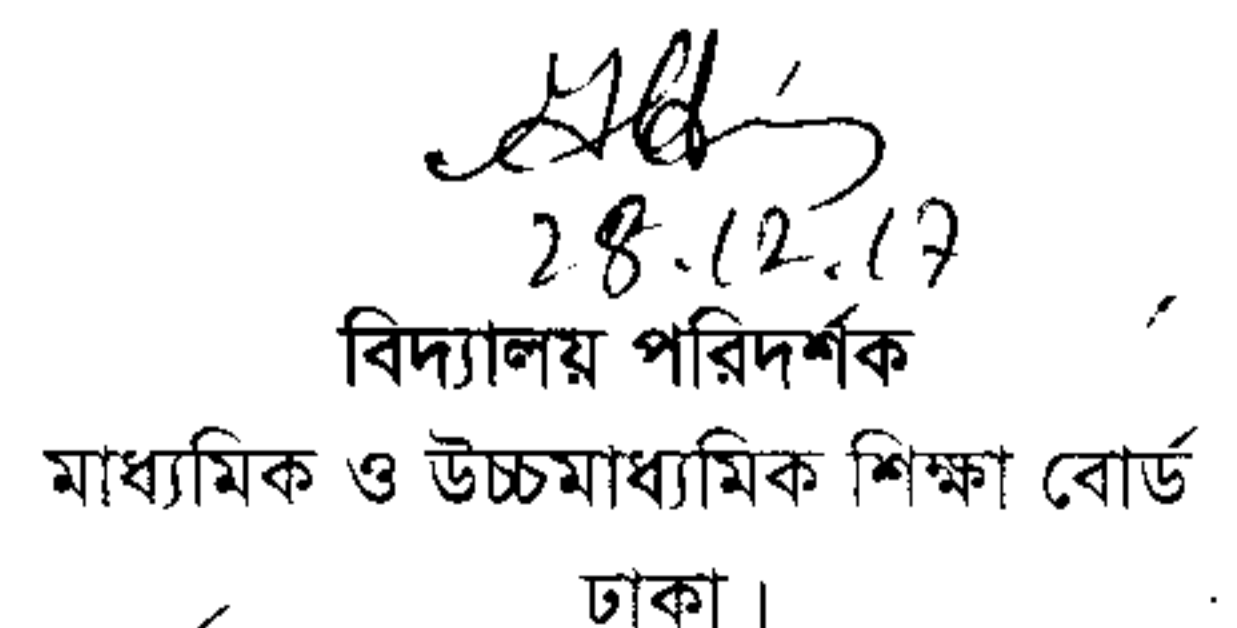 28.12.17
বিদ্যালয় পরিদর্শক
মাধ্যমিক ও উচ্চমাধ্যমিক শিক্ষা বোর্ড
ঢাকা।